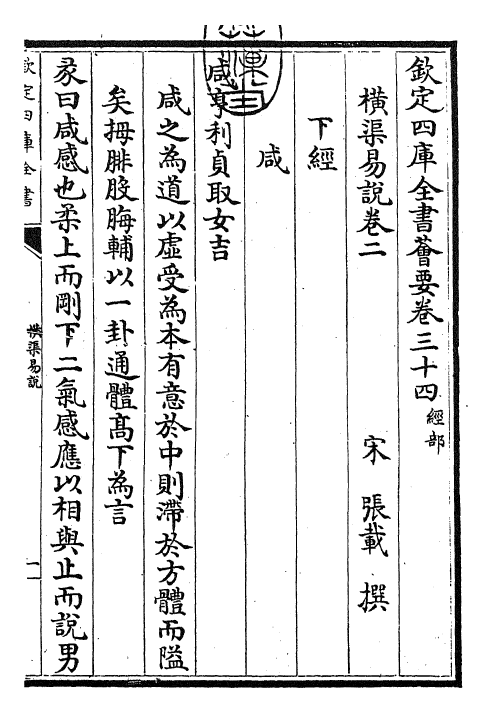 欽定四庫全書薈要卷三十四 經部
橫渠易說卷二 宋 張載 撰
下經
咸
咸亨利貞取女吉
咸之為道以虛受為本有意於中則滯於方體而隘
矣拇腓股脢輔以一卦通體高下為言
彖曰咸感也柔上而剛下二氣感應以相與止而說男
欽定四庫全書
橫渠易說
一